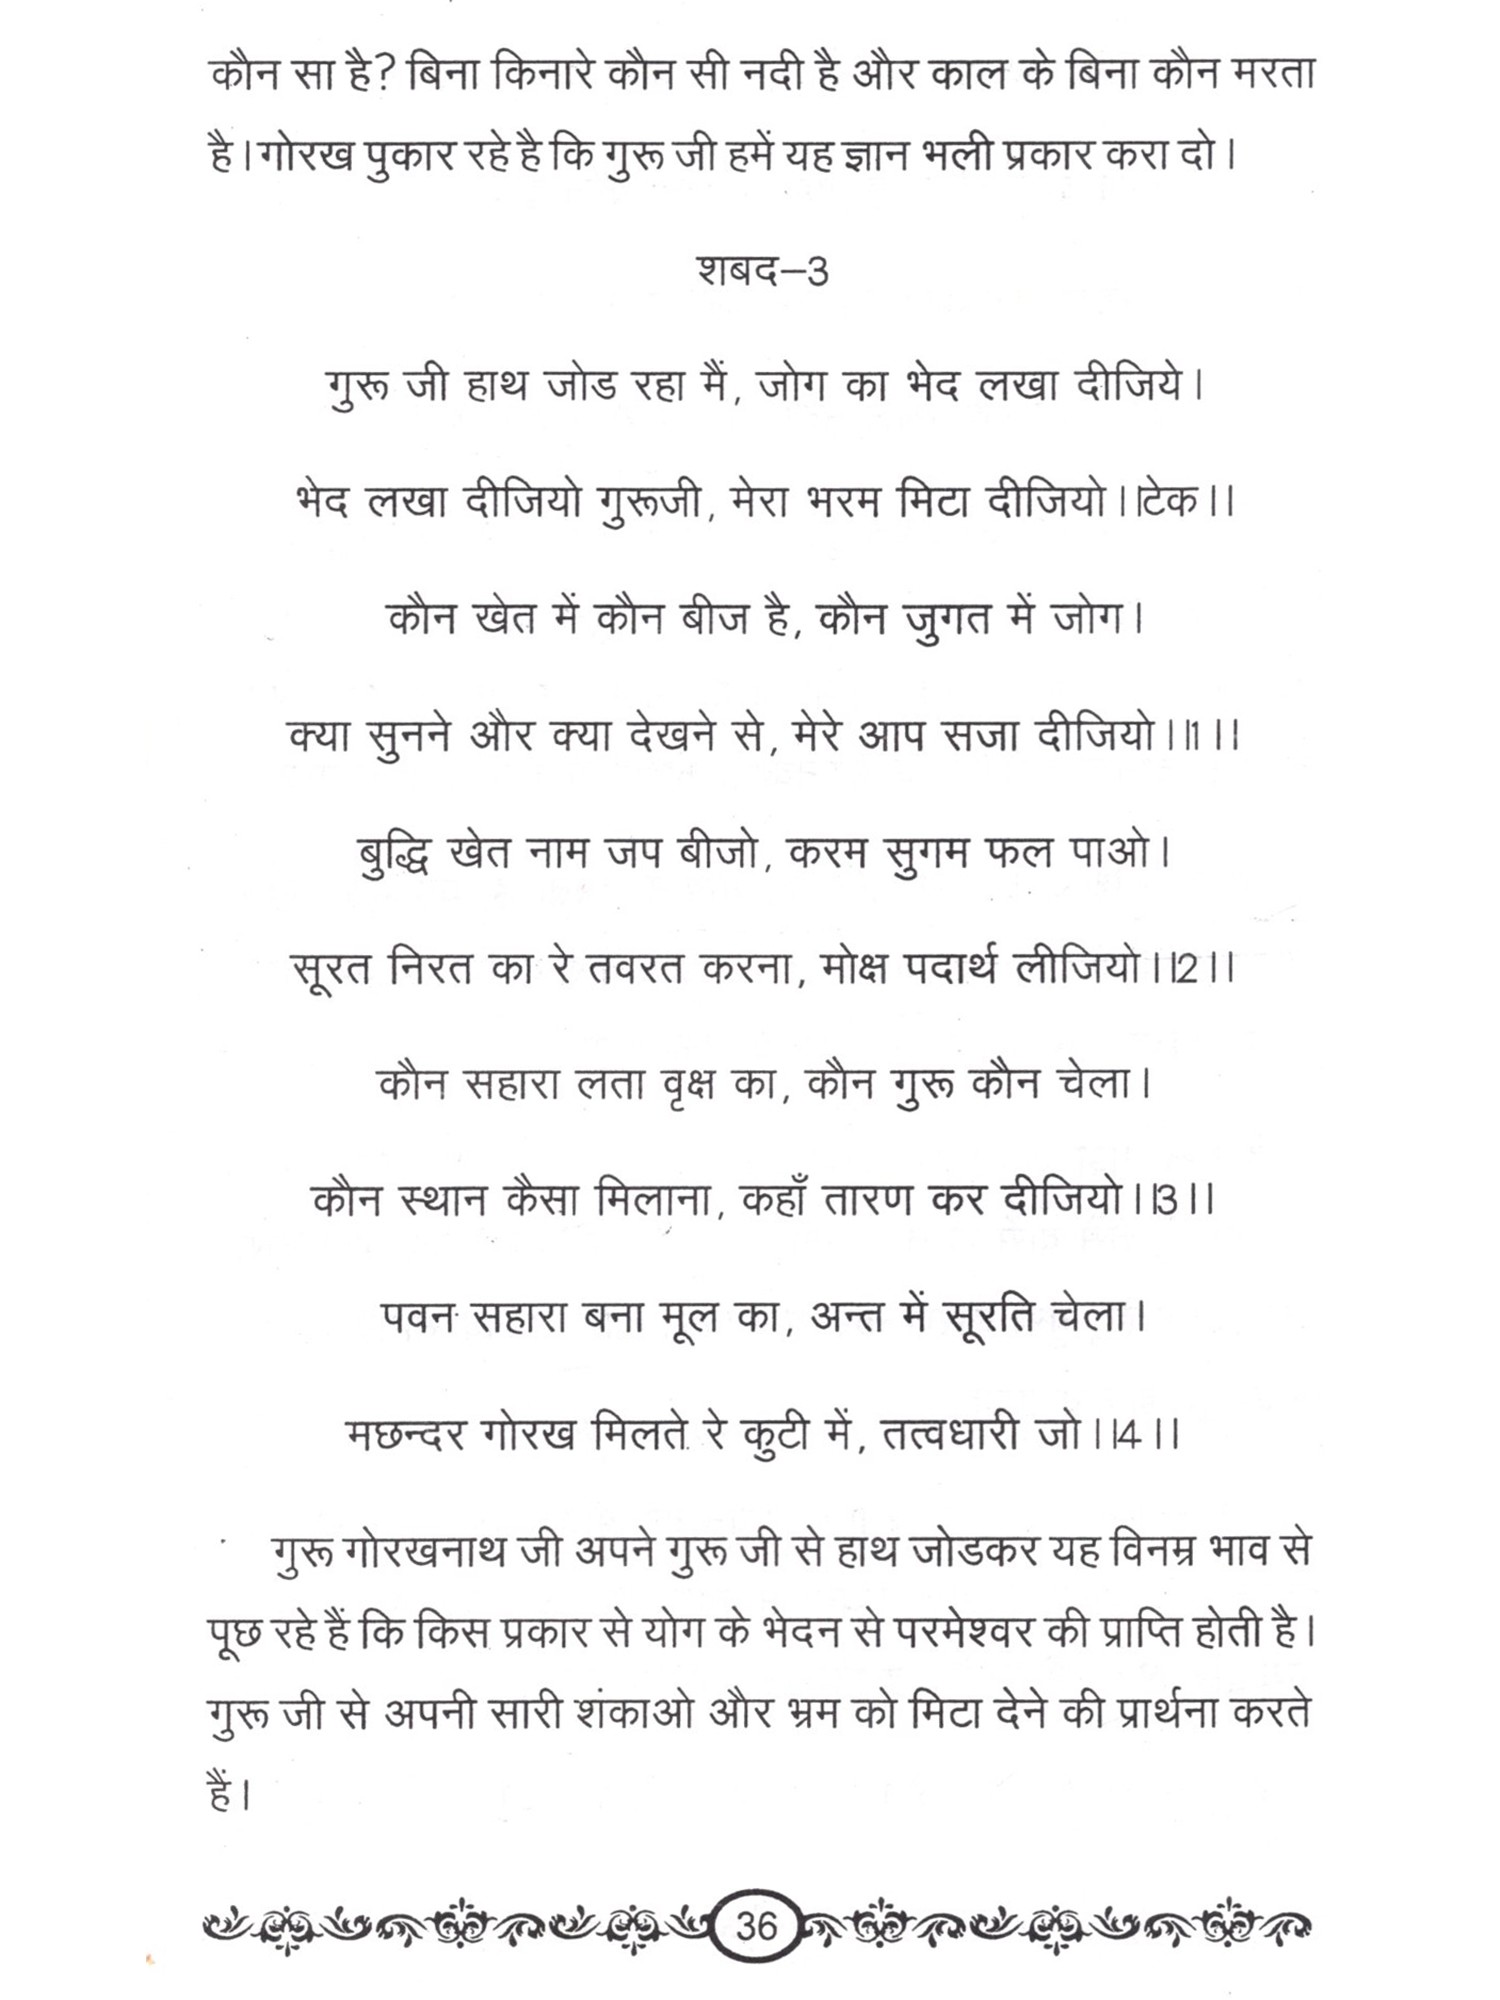 कौन सा है? बिना किनारे कौन सी नदी है और काल के बिना कौन मरता
है। गोरख पुकार रहे है कि गुरू जी हमें यह ज्ञान भली प्रकार करा दो।
शबद–3
गुरू जी हाथ जोड रहा मैं, जोग का भेद लखा दीजिये।
भेद लखा दीजियो गुरूजी, मेरा भरम मिटा दीजियो।।टेक।।
कौन खेत में कौन बीज है, कौन जुगत में जोग।
क्या सुनने और क्या देखने से, मेरे आप सजा दीजियो।।1।।
बुद्धि खेत नाम जप बीजो, करम सुगम फल पाओ।
सूरत निरत का रे तवरत करना, मोक्ष पदार्थ लीजियो।।2।।
कौन सहारा लता वृक्ष का, कौन गुरू कौन चेला।
कौन स्थान कैसा मिलाना, कहाँ तारण कर दीजियो।।3।।
पवन सहारा बना मूल का, अन्त में सूरति चेला।
मछन्दर गोरख मिलते रे कुटी में, तत्वधारी जो।।4।।
गुरू गोरखनाथ जी अपने गुरू जी से हाथ जोडकर यह विनम्र भाव से
पूछ रहे हैं कि किस प्रकार से योग के भेदन से परमेश्वर की प्राप्ति होती है।
गुरू जी से अपनी सारी शंकाओ और भ्रम को मिटा देने की प्रार्थना करते
हैं।
36